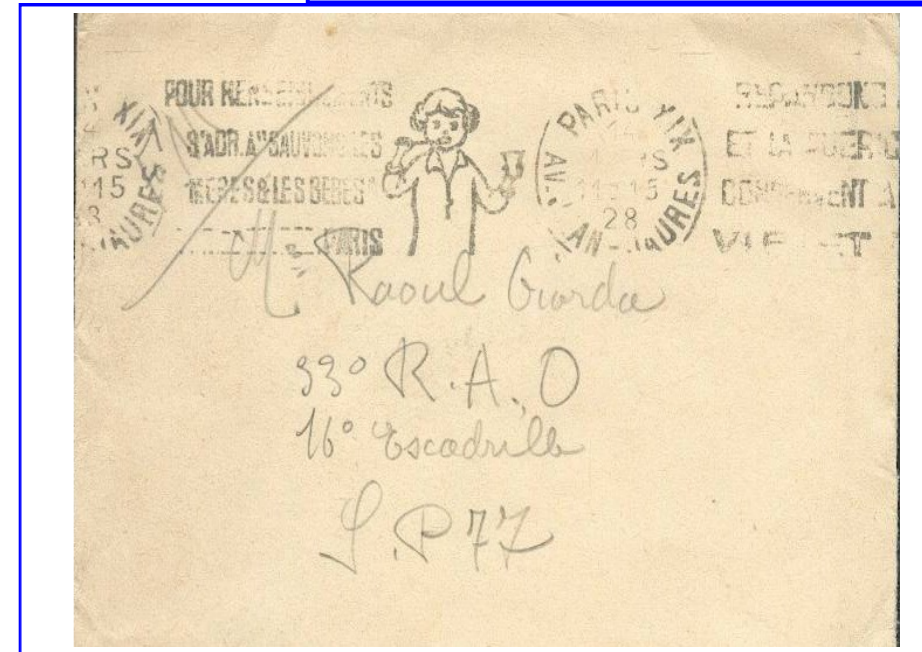 POUR RENSEIGNEMENTS
S'ADR. A "SAUVONS LES
MERES & LES BEBES"
PARIS
XIX
RS
15
AURES
PARIS XIX
RS
11 15
28
AV. AN-JAURES
ET LA
VIE ET
Mr Raoul Giorda
33° R.A.O
16° Escadrille
S.P 77